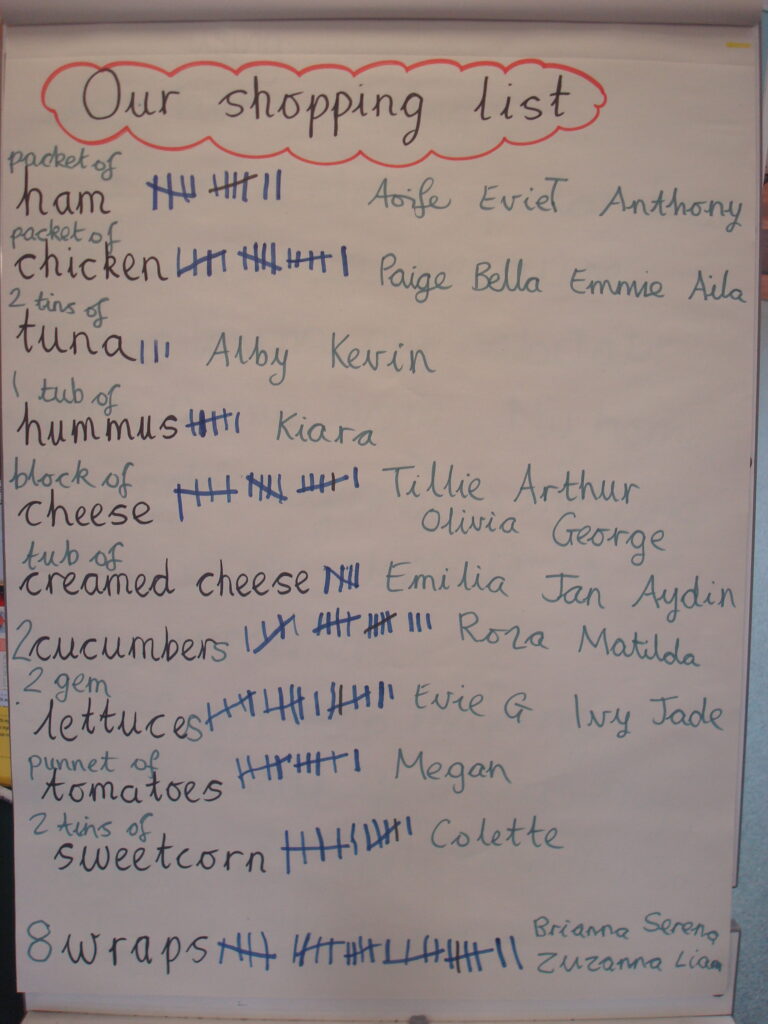 Our shopping list
packet of
ham Aoife Evie T Anthony
packet of
chicken Paige Bella Emmie Aila
2 tins of
tuna Alby Kevin
1 tub of
hummus Kiara
block of
cheese Tillie Arthur
Olivia George
tub of
creamed cheese Emilia Jan Aydin
2 cucumbers Roza Matilda
2 gem
lettuces Evie G Ivy Jade
punnet of
tomatoes Megan
2 tins of
sweetcorn Colette
8 wraps Brianna Serena
Zuzanna Liam